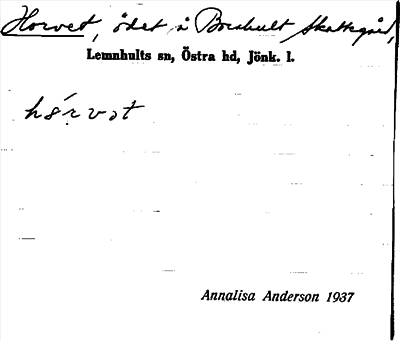 Horvet, ödet å Borshult Skattegård,
Lemnhults sn, Östra hd, Jönk. l.
hórvət
Annalisa Anderson 1937